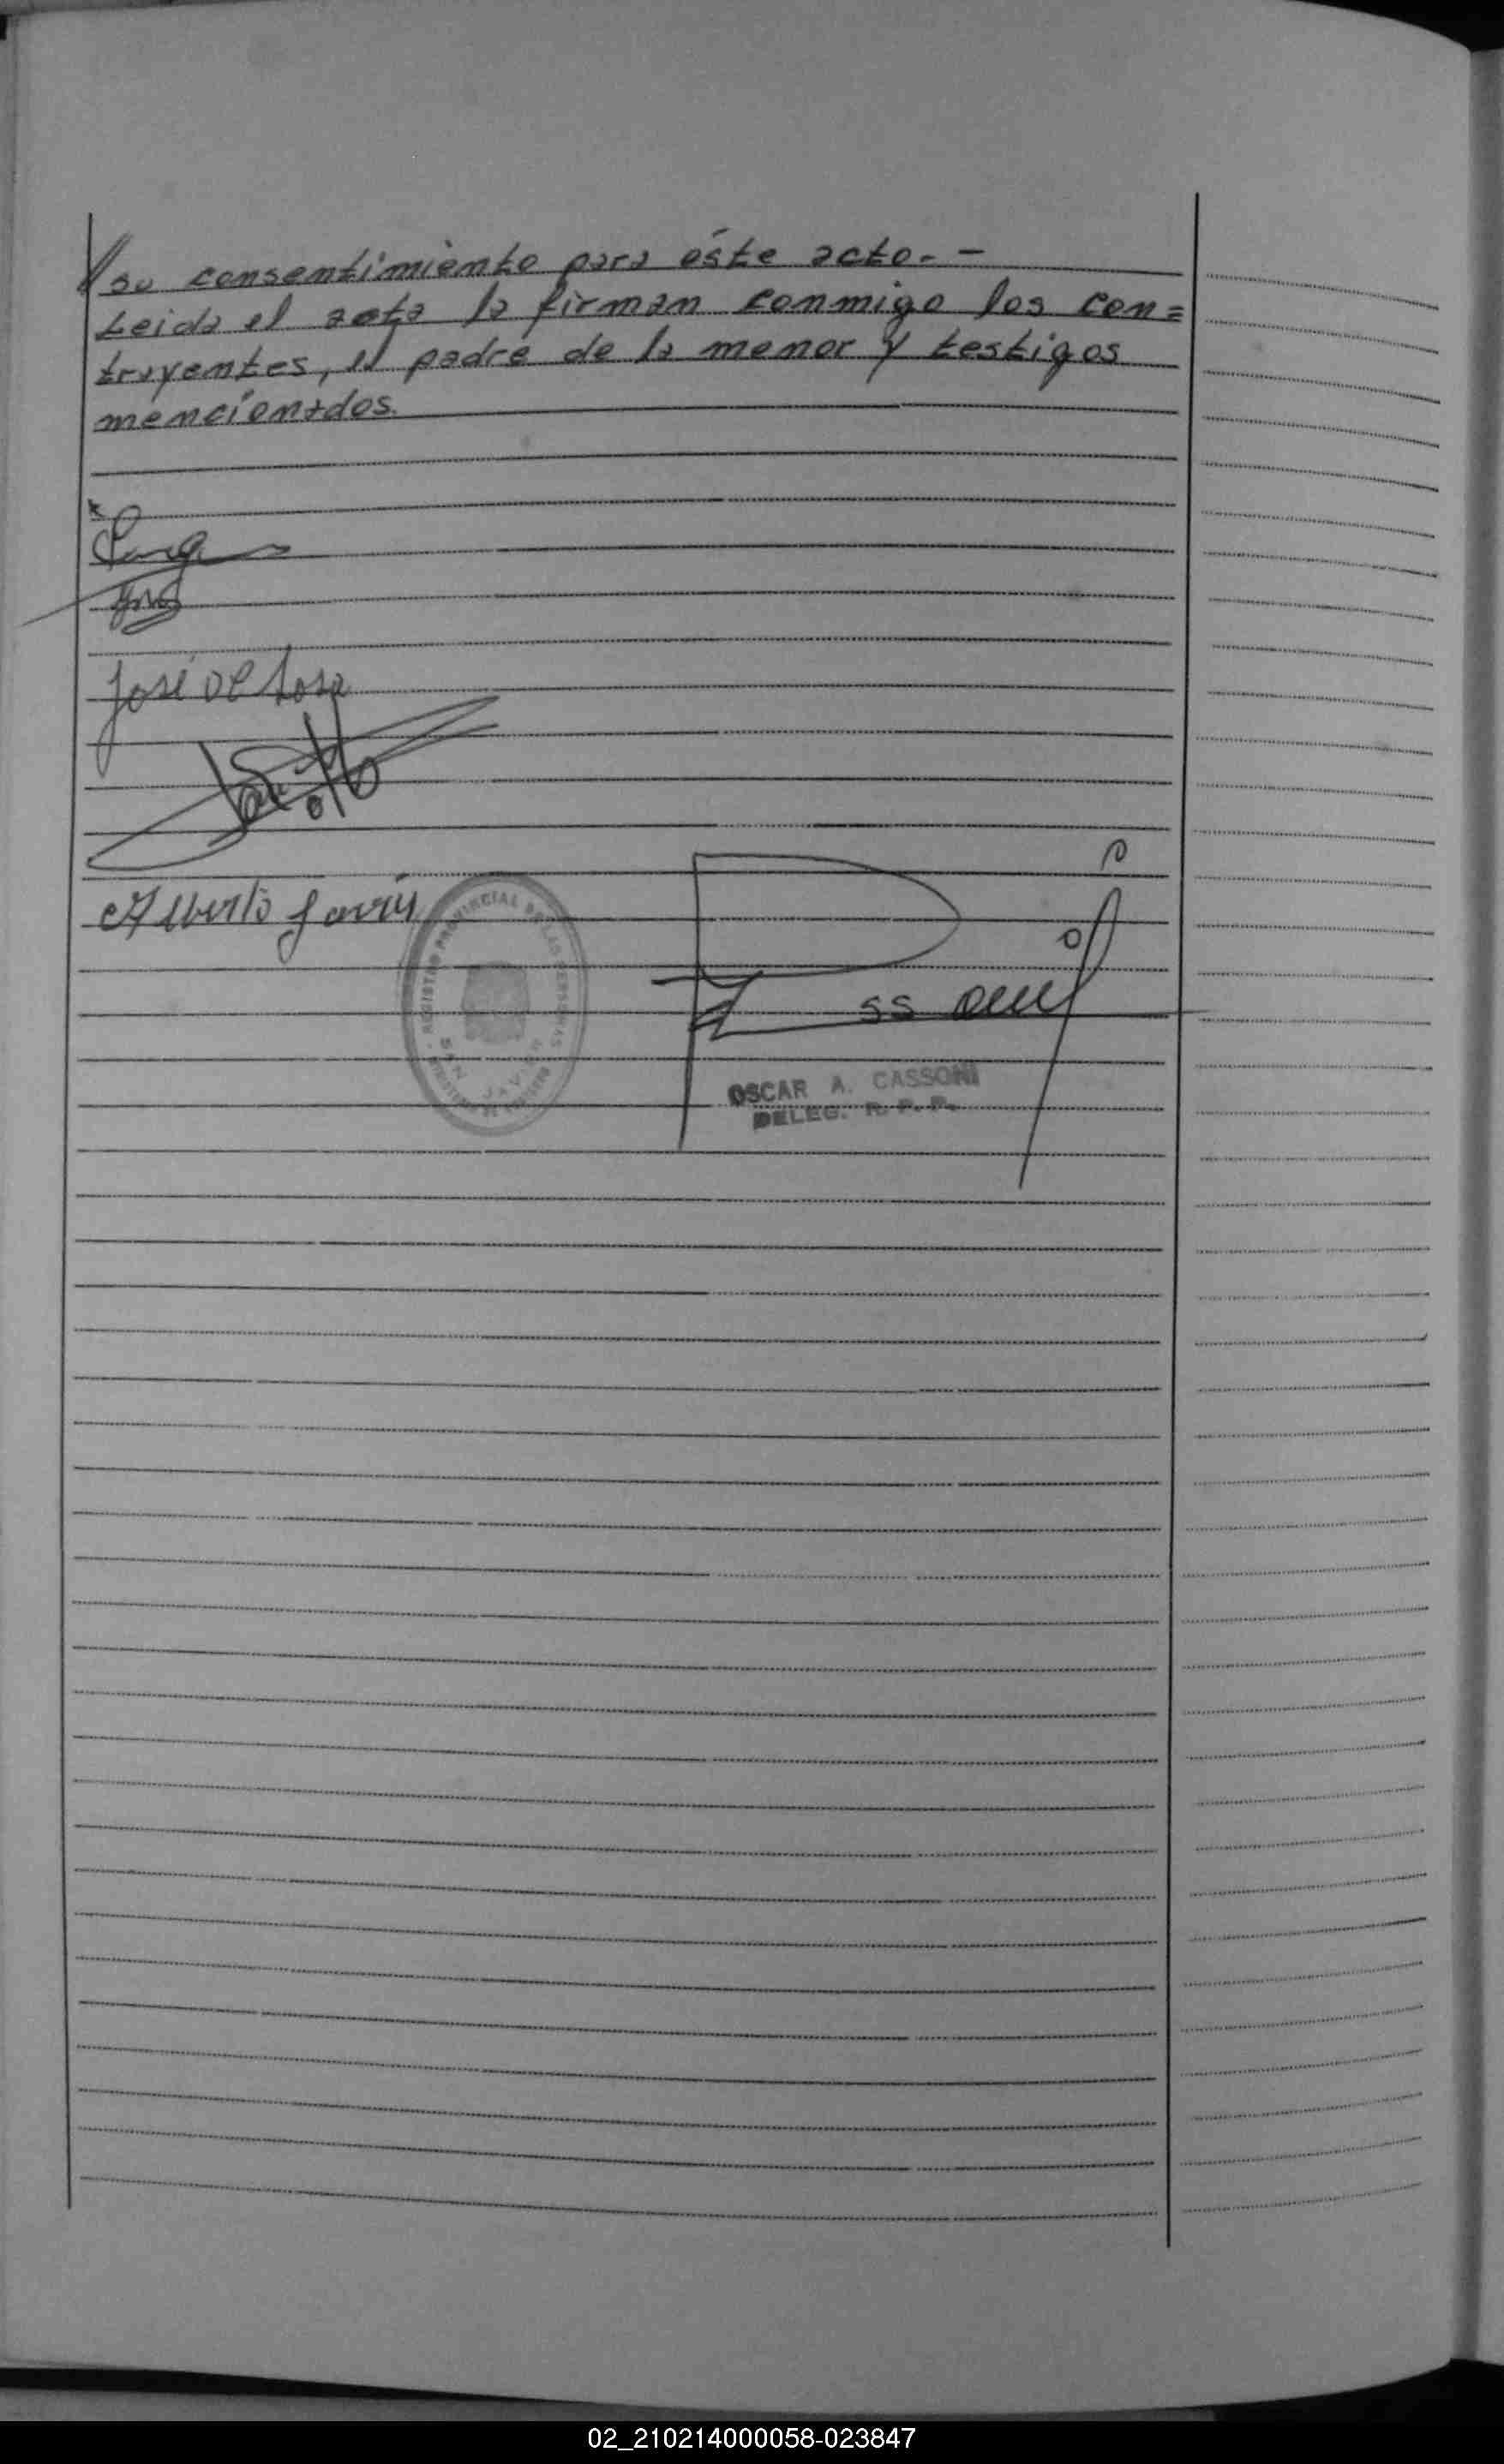 // su consentimiento para éste acto.-
Leida el acta la firman conmigo los con=
trayentes, el padre de la menor y testigos
mencionados.
José
Alberto
REGISTRO PROVINCIAL DE LAS PERSONAS
SAN JAVIER
OSCAR A. CASSONI
DELEG. R. P. P.
02_210214000058-023847